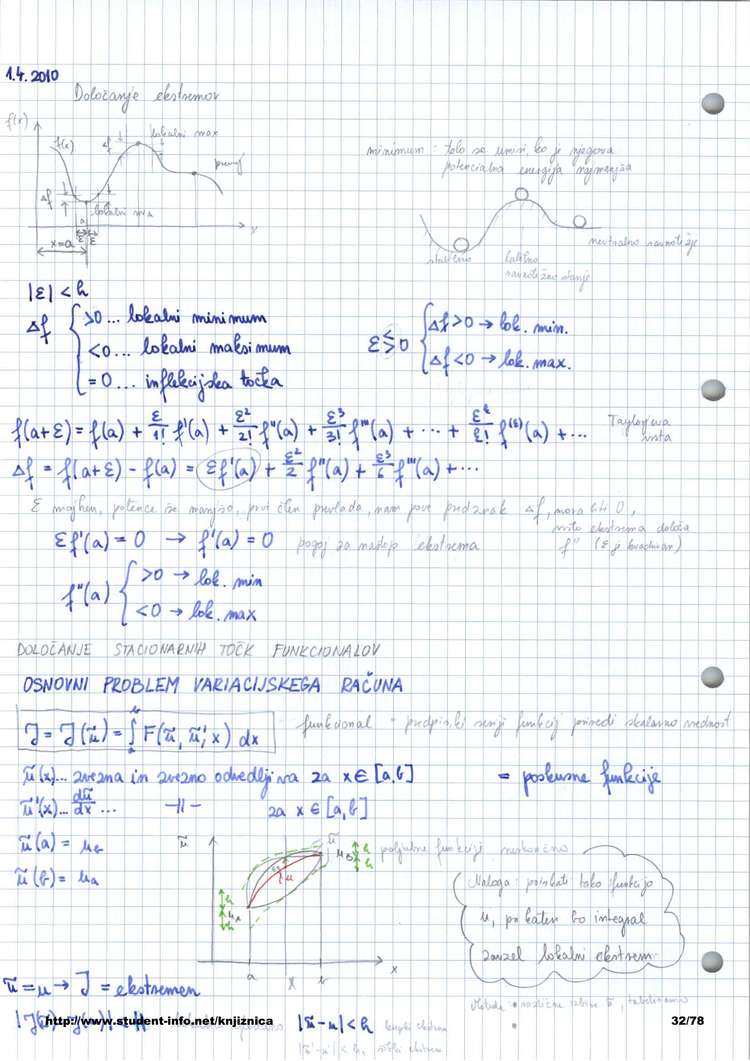 1.4.2010
Določanje ekstremov
f(x)
f(x)
Δf
lokalni max
prevoj
Δf
lokalni min
a
ε ε
x=a
minimum: telo se umiri, ko je njegova
potencialna energija najmanjša
stabilno
labilno
ravnotežno stanje
nevtralno ravnotežje
|ε| < h
Δf { >0 ... lokalni minimum
<0 ... lokalni maksimum
=0 ... inflekcijska točka
ε ≶ 0 { Δf>0 → lok. min.
Δf<0 → lok. max.
f(a+ε) = f(a) + ε/1! f'(a) + ε²/2! f''(a) + ε³/3! f'''(a) + ... + Taylorjeva
vrsta
Δf = f(a+ε) - f(a) = εf'(a) + ε²/2 f''(a) + ε³/6 f'''(a) + ...
ε majhen, potence še manjše, prvi člen prevlada, nam pove predznak Δf, mora biti 0,
vrsto ekstrema določa
εf'(a) = 0 → f'(a) = 0 pogoj za nastop ekstrema f'' (ε je kvadriran)
f''(a) { >0 → lok. min
<0 → lok. max
DOLOČANJE STACIONARNIH TOČK FUNKCIONALOV
OSNOVNI PROBLEM VARIACIJSKEGA RAČUNA
J = J(ũ) = ∫ F(ũ, ũ', x) dx funkcional = predpis, ki funkcij priredi skalarno vrednost
ũ(x)... zvezna in zvezno odvedljiva za x ∈ [a,b] = poskusne funkcije
ũ'(x)... dũ/dx ... -||- za x ∈ [a,b]
ũ(a) = u
ũ(b) = u
ũ
ũ
u_B
h
h
u
h
u_A
h
a
x
b
x
poljubne funkcije neskončno
Naloga: poiskati tako funkcijo
u, pri kateri bo integral
zavzel lokalni ekstrem
ũ = u → J = ekstremen
http://www.student-info.net/knjiznica
|ũ-u| < h
|ũ'-u'| < h,
32/78